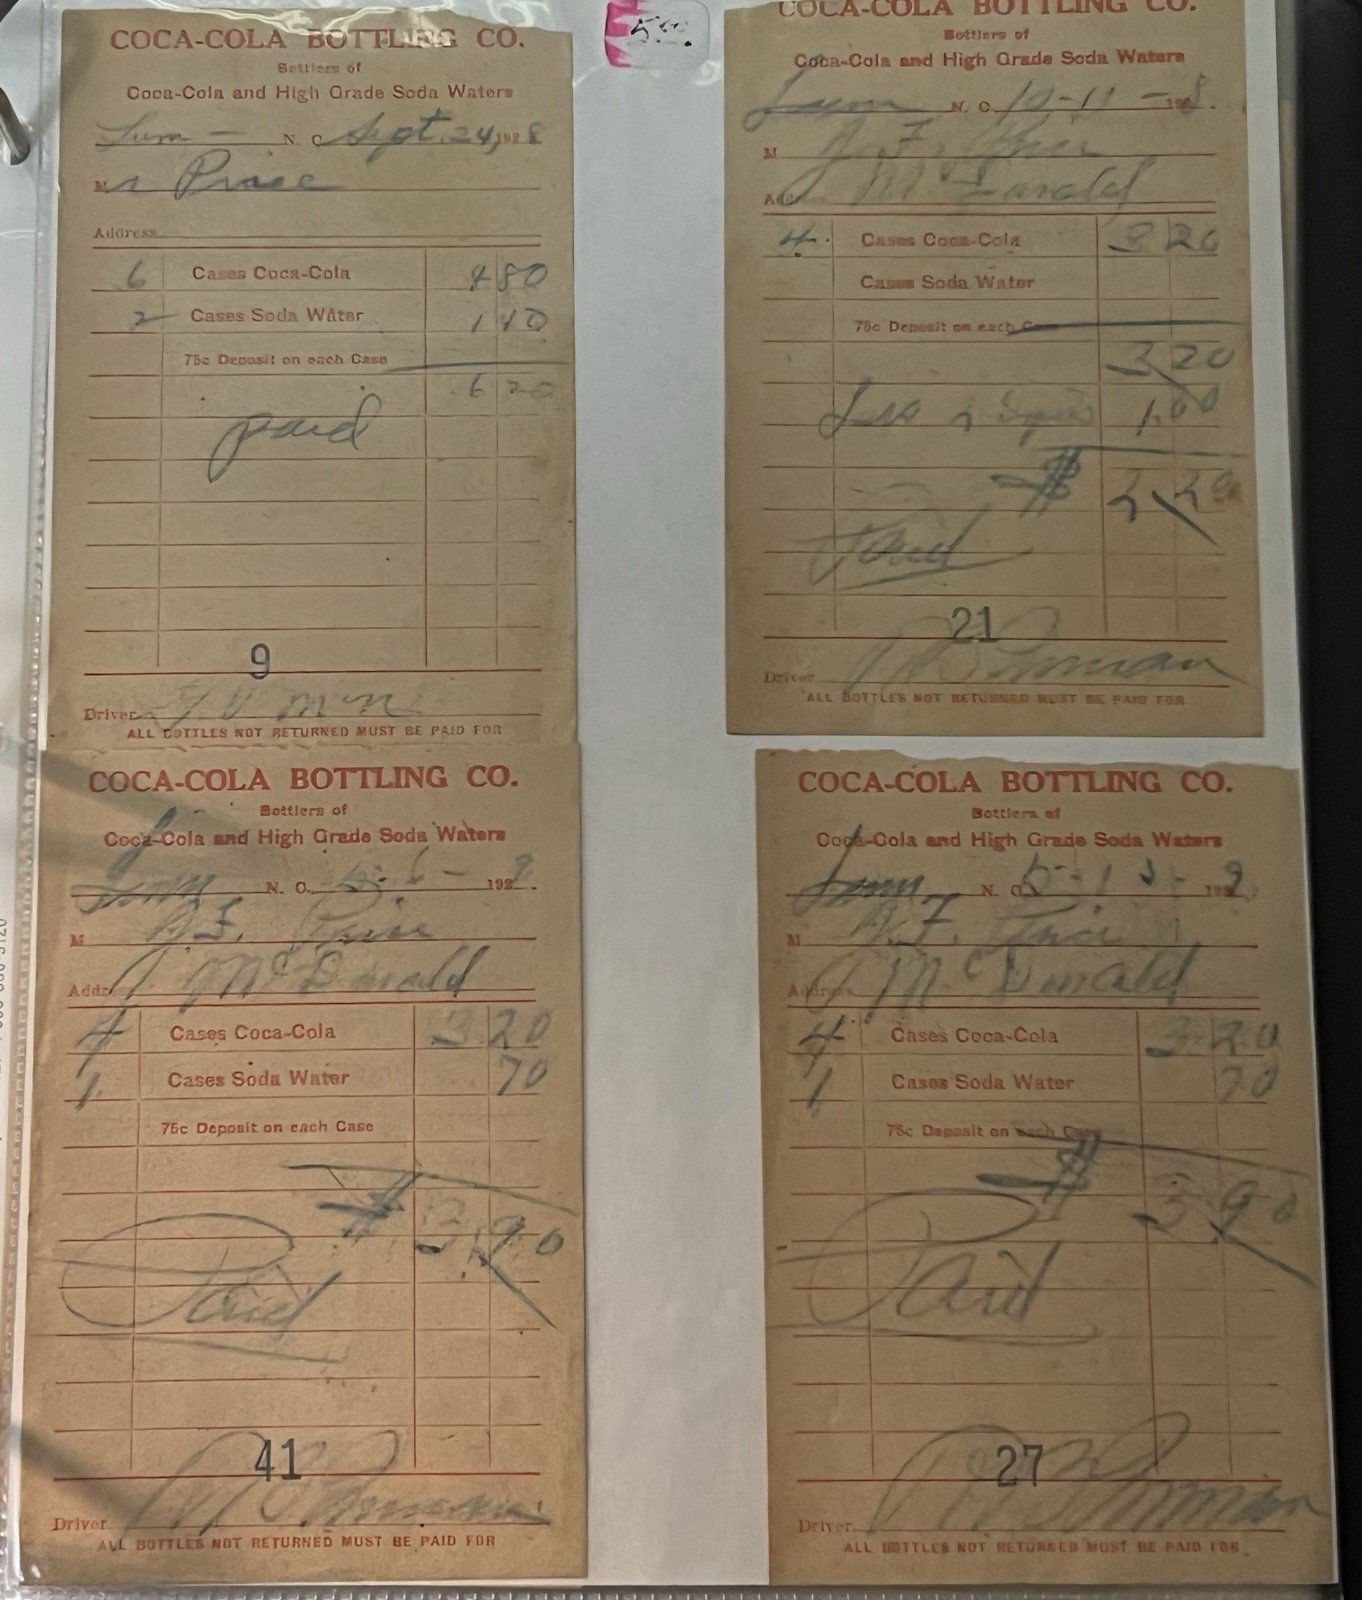 COCA-COLA BOTTLING CO.
Bottlers of
Coca-Cola and High Grade Soda Waters
Lum - N. C. Sept. 24, 1928
Mr Price
Address
6 Cases Coca-Cola 4 80
2 Cases Soda Water 1 40
75c Deposit on each Case
6 20
paid
9
Driver
ALL BOTTLES NOT RETURNED MUST BE PAID FOR
5.00
COCA-COLA BOTTLING CO.
Bottlers of
Coca-Cola and High Grade Soda Waters
Lum N. C. 10-11-1928.
M J. F. Price
Add McDonald
4. Cases Coca-Cola 3 20
Cases Soda Water
75c Deposit on each Case
3 20
Less 1.00
$ 2 20
Paid
21
Driver
ALL BOTTLES NOT RETURNED MUST BE PAID FOR
COCA-COLA BOTTLING CO.
Bottlers of
Coca-Cola and High Grade Soda Waters
Lum N. C. 5-6-1929.
M J. F. Price
Address McDonald
4 Cases Coca-Cola 3 20
1 Cases Soda Water 70
75c Deposit on each Case
$ 3 90
Paid
41
Driver
ALL BOTTLES NOT RETURNED MUST BE PAID FOR
COCA-COLA BOTTLING CO.
Bottlers of
Coca-Cola and High Grade Soda Waters
Lum N. C. 1929.
M J. F. Price
Address McDonald
4 Cases Coca-Cola 3 20
1 Cases Soda Water 70
75c Deposit on each Case
$ 3 90
Paid
27
Driver
ALL BOTTLES NOT RETURNED MUST BE PAID FOR